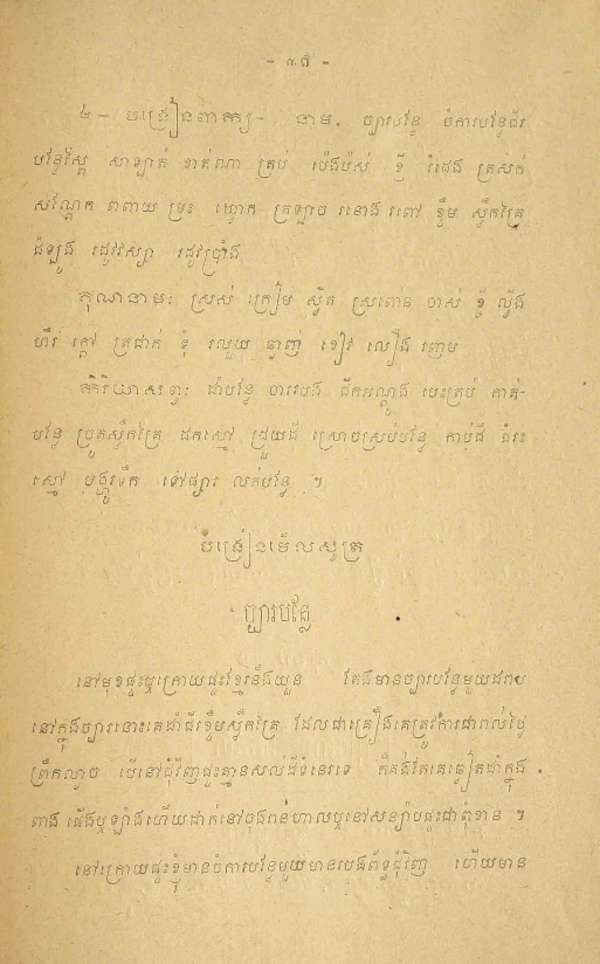 - ៣៥ -
៤ - បង្រៀនពាក្យ - នាម. ច្បារបន្លែ ចំការបន្លែជីរ
បន្លែស្ពៃ សាឡាត់ ខាត់ណា ត្រប់ ប៉េងប៉ស់ ខ្ញី រំដេង ត្រសក់
សណ្តែក ននោង ត្រឡាច រនោង រពៅ ខ្ទឹម ស្លឹកគ្រៃ
ដំឡូង រដូវវស្សា រដូវប្រាំង
គុណនាមៈ ស្រស់ ក្រៀម ស្វិត ស្រពោន ចាស់ ខ្ចី ល្វីង
ហឹរ ក្តៅ ត្រជាក់ ទុំ រលួយ ធ្ងាញ់ ខៀវ លឿង រញម
កិរិយាសព្ទៈ ដាំបន្លែ ចាររបង ជីកអណ្តូង បេះត្រប់ កាត់-
បន្លែ ច្រូតស្លឹកគ្រៃ ដកស្មៅ ជ្រួយដី ស្រោចស្រប់បន្លែ កាប់ដី ជំរះ
ស្មៅ បង្ហូរទឹក ទៅផ្សារ លក់បន្លែ ។
បំរៀនមើលសូត្រ
ច្បារបន្លែ
នៅមុខផ្ទះឬក្រោយផ្ទះខ្មែរនិងយួន តែងមានច្បារបន្លែមួយដរាប
នៅក្នុងច្បារនោះគេដាំជីរខ្ទឹមស្លឹកគ្រៃ ដែលជាគ្រឿងគេត្រូវការជារាល់ថ្ងៃ
ព្រឹកល្ងាច បើនៅជុំវិញផ្ទះគ្មានសល់ដីទំនេរទេ ក៏គង់តែគេធ្វៀតដាំក្នុង
ពាង ផើងឬឡាំងហើយដាក់នៅចុងរានហាលឬនៅសន្យាបផ្ទះជាពុំខាន ។
នៅក្រោយផ្ទះខ្ញុំមានចំការបន្លែមួយមានរបងព័ទ្ធជុំវិញ ហើយមាន